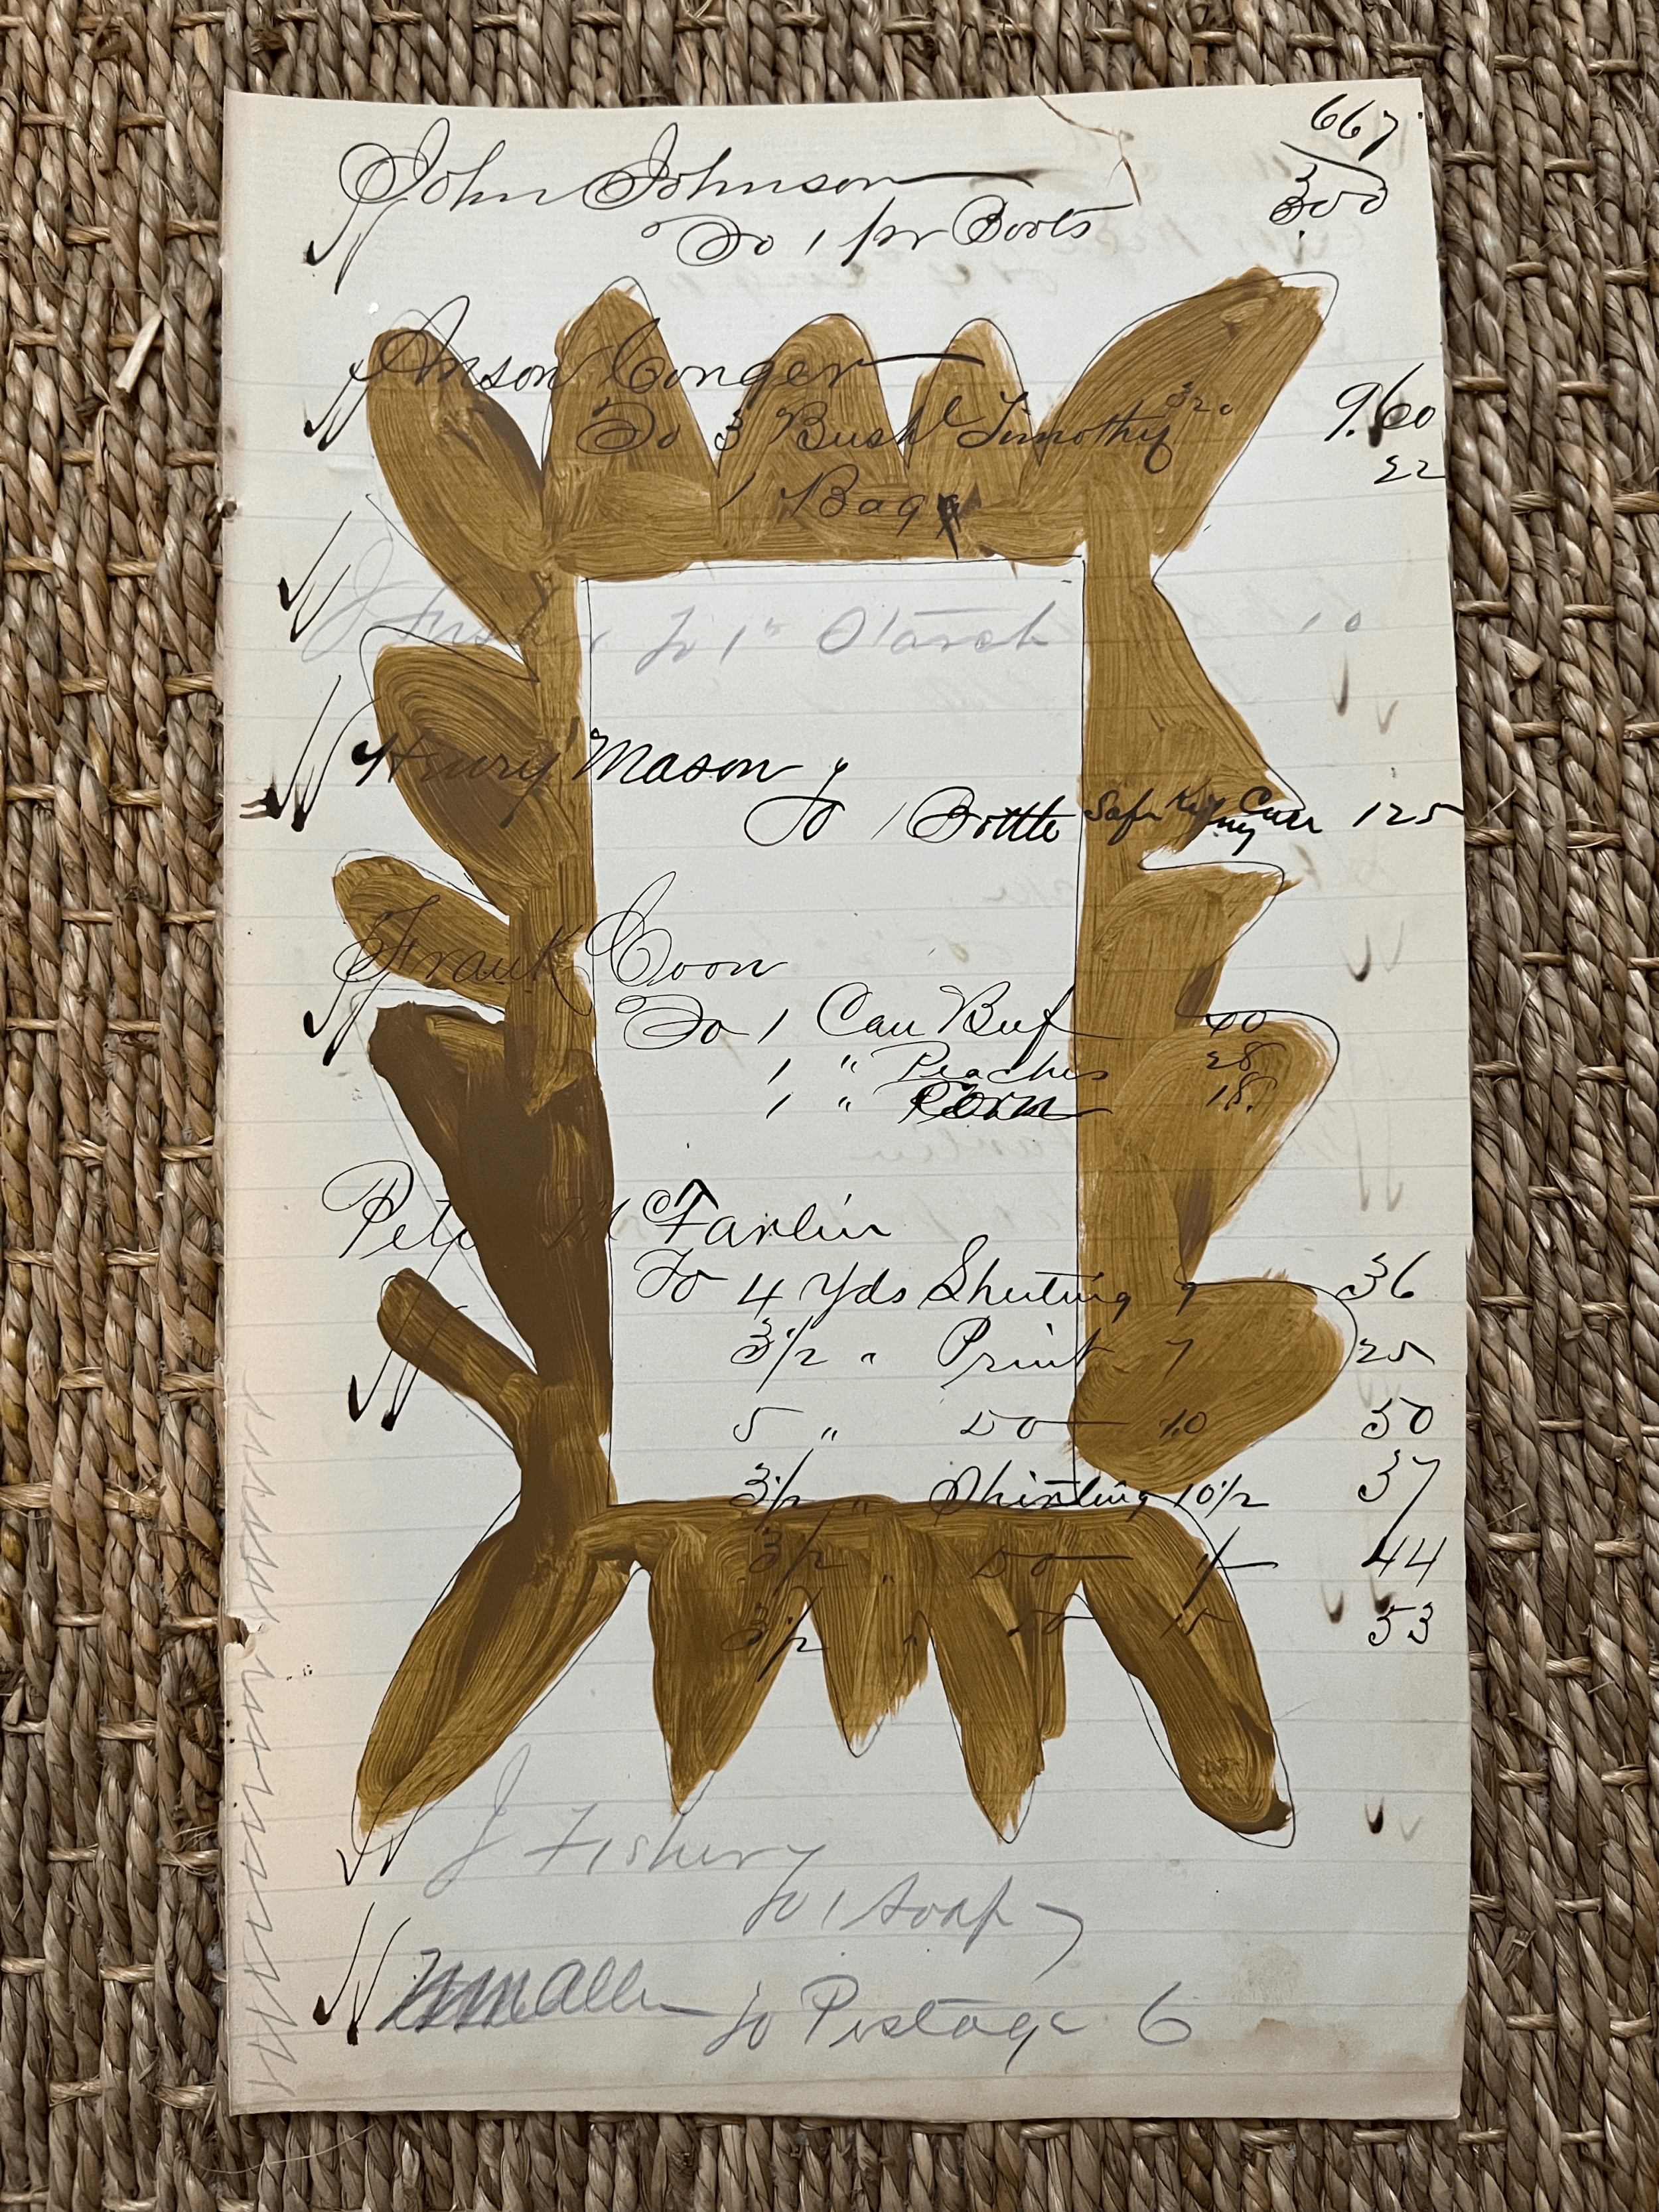 667
John Johnson
To 1 pr Boots 300
Anson Conger
To 3 Bushl Timothy 320 9.60
1 Bag 22
J Fisher To 1 Starch 10
Henry Mason
To 1 Bottle Safe Kidney Cure 125
Frank Coon
To 1 Can Beef 40
1 " Peaches 28
1 " Corn 18
Peter McFarlin
To 4 Yds Sheeting 9 36
3 1/2 " Print 7 25
5 " Do 10 50
3 1/2 " Shirting 10 1/2 37
3 1/2 " Do 44
3 1/2 " Do 15 53
J Fisher
To 1 Soap
Allen To Postage 6